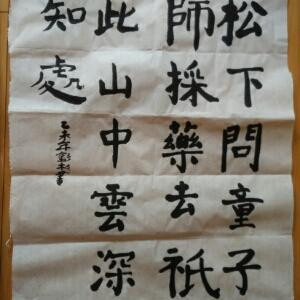 松下問童子
師採藥去祇
此山中雲深
知處
乙未年
書